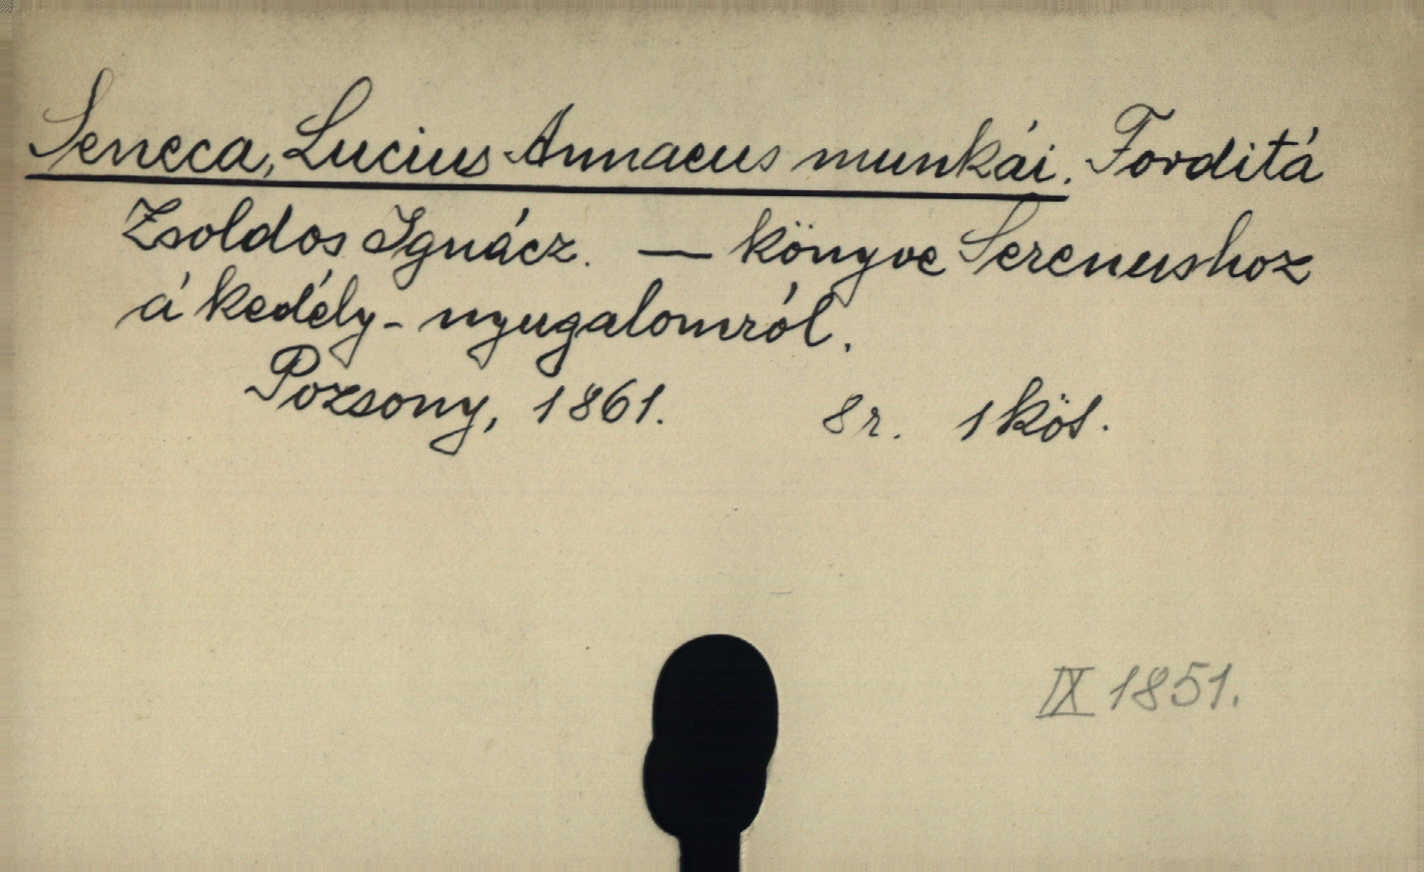 Seneca, Lucius Annaeus munkái. Forditá
Zsoldos Ignácz. — könyve Serenushoz
á kedély-nyugalomról.
Pozsony, 1861. 8r. 1 köt.
IX 1851.